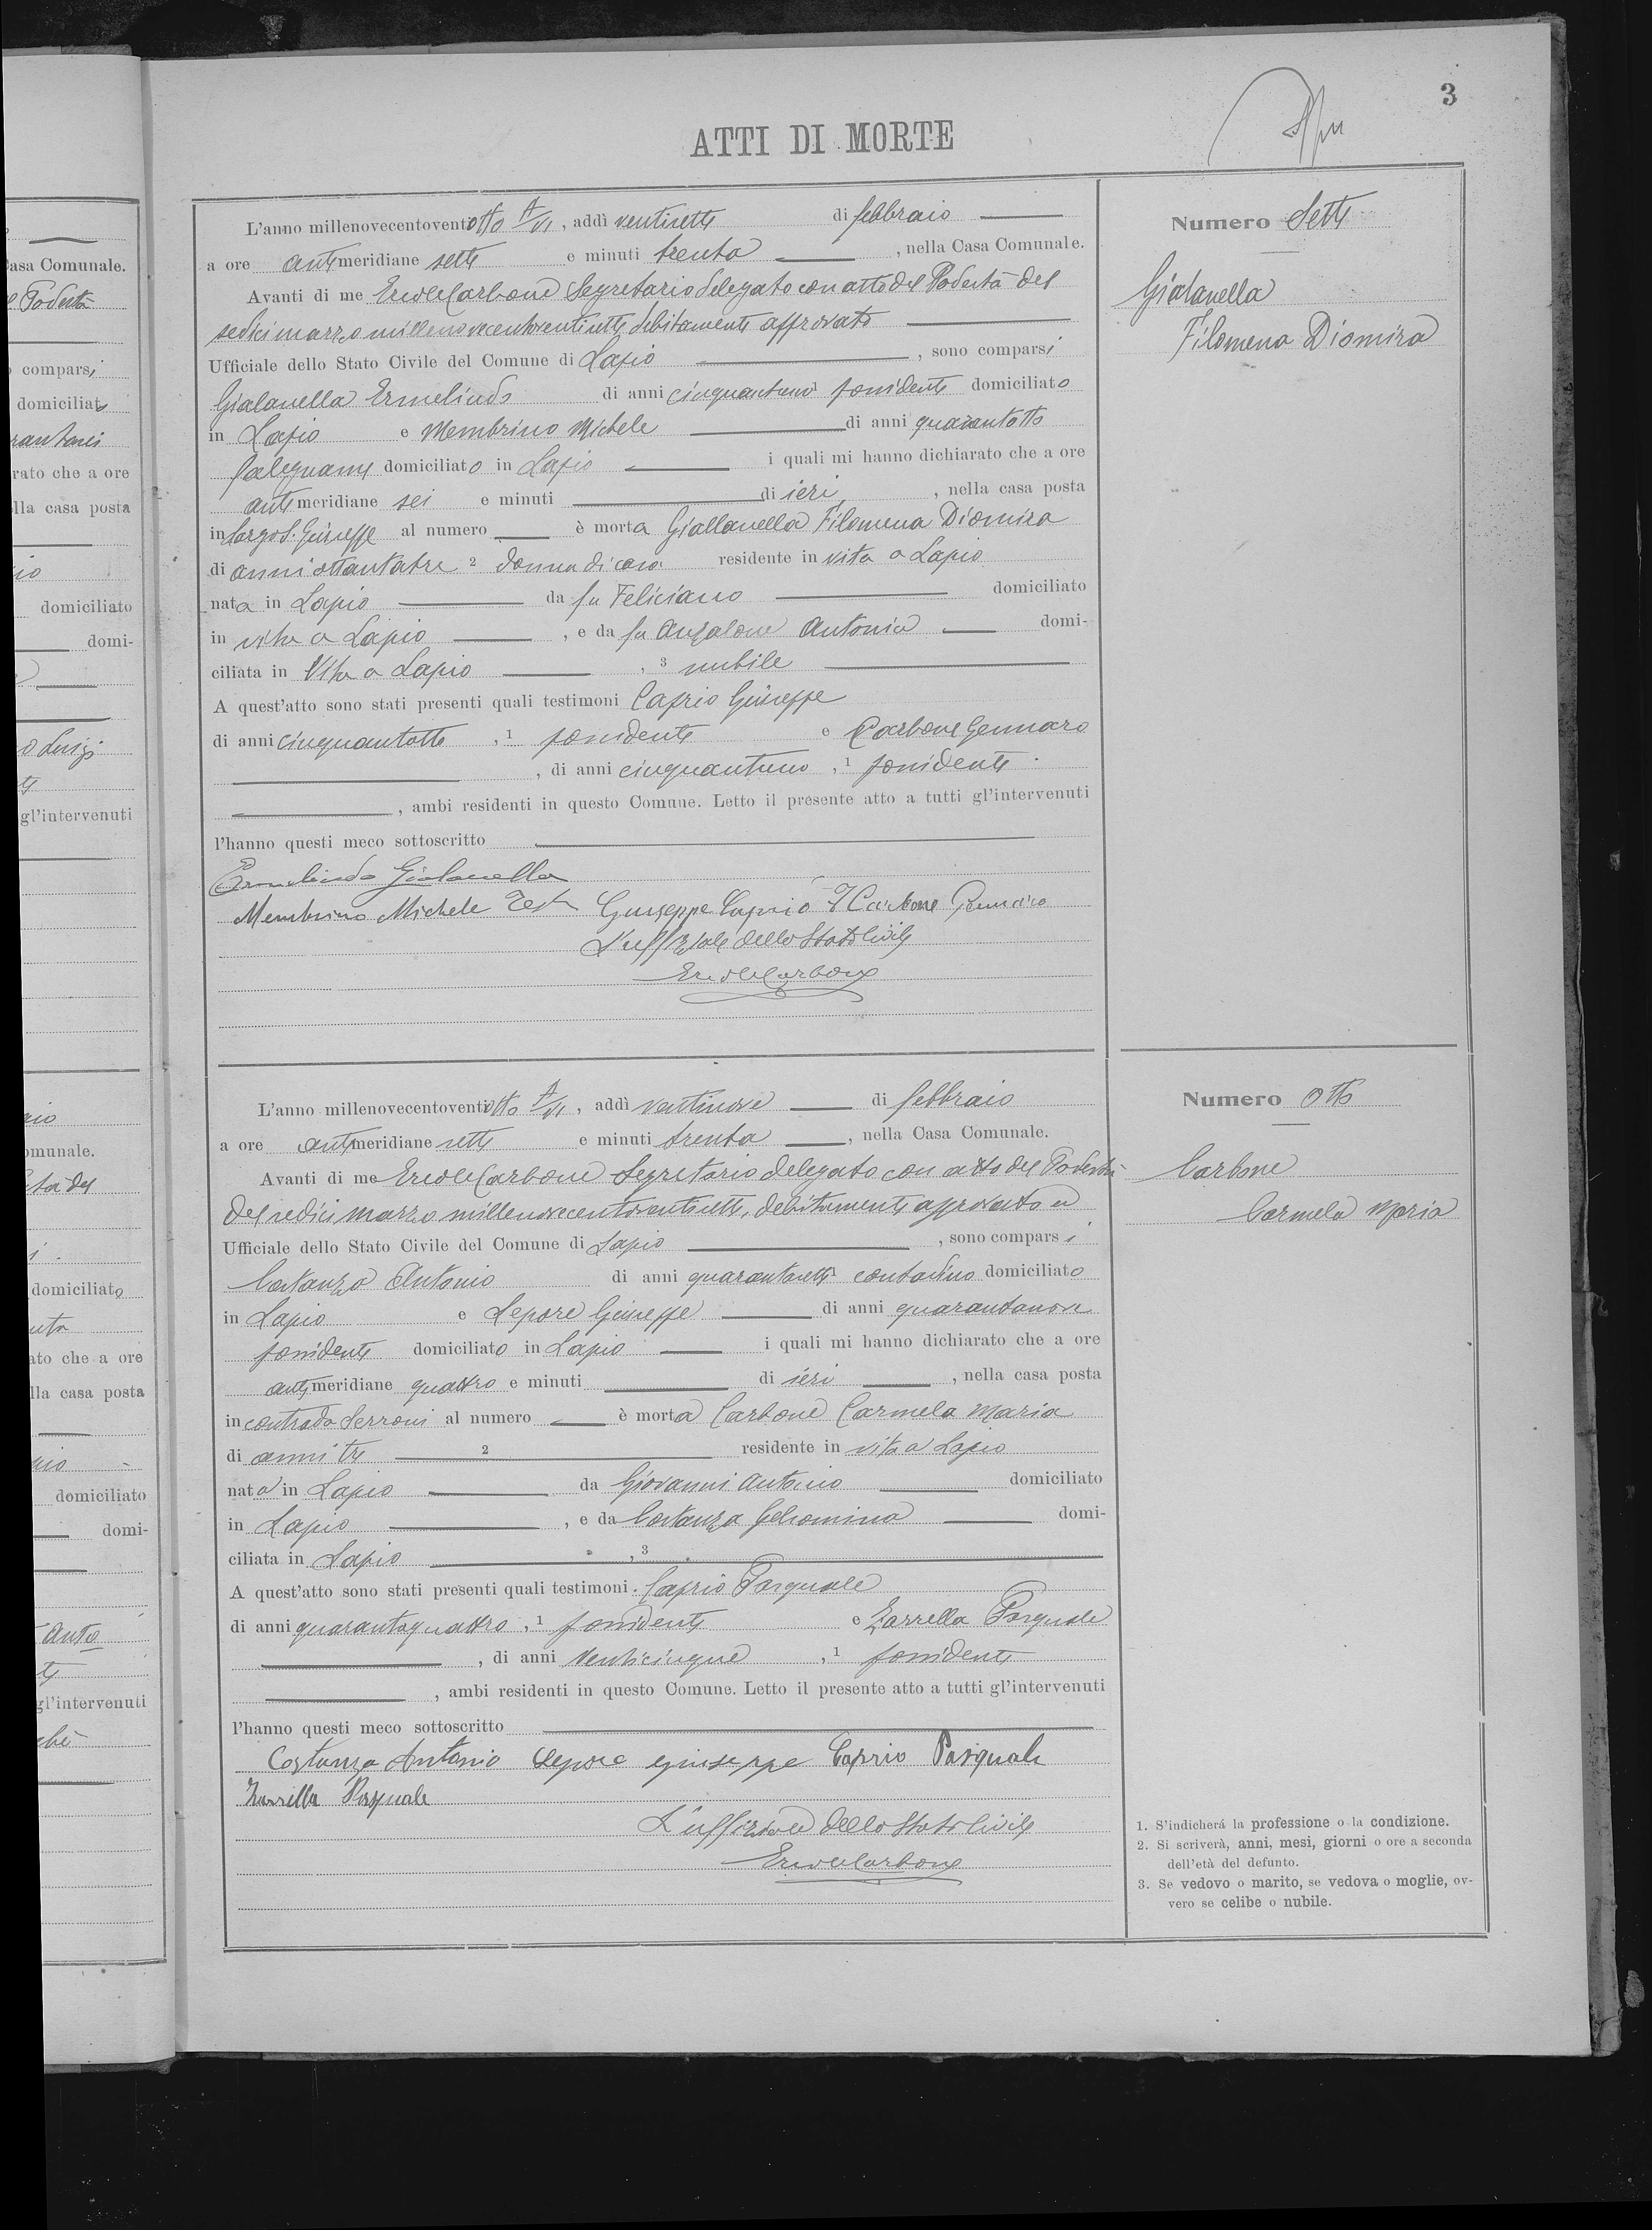 3
ATTI DI MORTE
L'anno millenovecentoventiotto A/VI, addì ventisette di febbraio
a ore antimeridiane sette e minuti trenta, nella Casa Comunale.
Avanti di me Ercole Carbone Segretario delegato con atto del Podestà del
sedici marzo millenovecentoventisette, debitamente approvato
Ufficiale dello Stato Civile del Comune di Lapio, sono comparsi
Gialanella Ermelindo di anni cinquantuno possidente domiciliato
in Lapio e Membrino Michele di anni quarantotto
falegname domiciliato in Lapio i quali mi hanno dichiarato che a ore
antimeridiane sei e minuti di ieri, nella casa posta
in largo S. Giuseppe al numero è morta Giallanella Filomena Diomira
di anni ottantatre 2 donna di casa residente in vita a Lapio
nata in Lapio da fu Feliciano domiciliato
in vita a Lapio, e da fu Anzalone Antonia domi-
ciliata in vita a Lapio, 3 nubile
A quest'atto sono stati presenti quali testimoni Caprio Giuseppe
di anni cinquantotto, 1 possidente e Carbone Gennaro
, di anni cinquantuno, 1 possidente
, ambi residenti in questo Comune. Letto il presente atto a tutti gl'intervenuti
l'hanno questi meco sottoscritto
Ermelindo Gialanella
Membrino Michele Teste Giuseppe Caprio T Carbone Gennaro
L'uffiziale dello Stato Civile
Ercole Carbone
Numero Sette
Gialanella
Filomena Diomira
L'anno millenovecentoventiotto A/VI, addì ventinove di febbraio
a ore antimeridiane sette e minuti trenta, nella Casa Comunale.
Avanti di me Ercole Carbone Segretario delegato con atto del Podestà
del sedici marzo millenovecentoventisette, debitamente approvato
Ufficiale dello Stato Civile del Comune di Lapio, sono comparsi
Costanza Antonio di anni quarantasette contadino domiciliato
in Lapio e Lepore Giuseppe di anni quarantanove
possidente domiciliato in Lapio i quali mi hanno dichiarato che a ore
antimeridiane quattro e minuti di ieri, nella casa posta
in contrada Serroni al numero è morta Carbone Carmela Maria
di anni tre 2 residente in vita a Lapio
nata in Lapio da Giovanni Antonio domiciliato
in Lapio, e da Costanza Gelsomina domi-
ciliata in Lapio, 3
A quest'atto sono stati presenti quali testimoni Caprio Pasquale
di anni quarantaquattro, 1 possidente e Zarrella Pasquale
, di anni venticinque, 1 possidente
, ambi residenti in questo Comune. Letto il presente atto a tutti gl'intervenuti
l'hanno questi meco sottoscritto
Costanza Antonio Lepore Giuseppe Caprio Pasquale
Zarrella Pasquale
L'uffiziale dello Stato Civile
Ercole Carbone
Numero Otto
Carbone
Carmela Maria
1. S'indicherá la professione o la condizione.
2. Si scriverà, anni, mesi, giorni o ore a seconda
dell'età del defunto.
3. Se vedovo o marito, se vedova o moglie, ov-
vero se celibe o nubile.